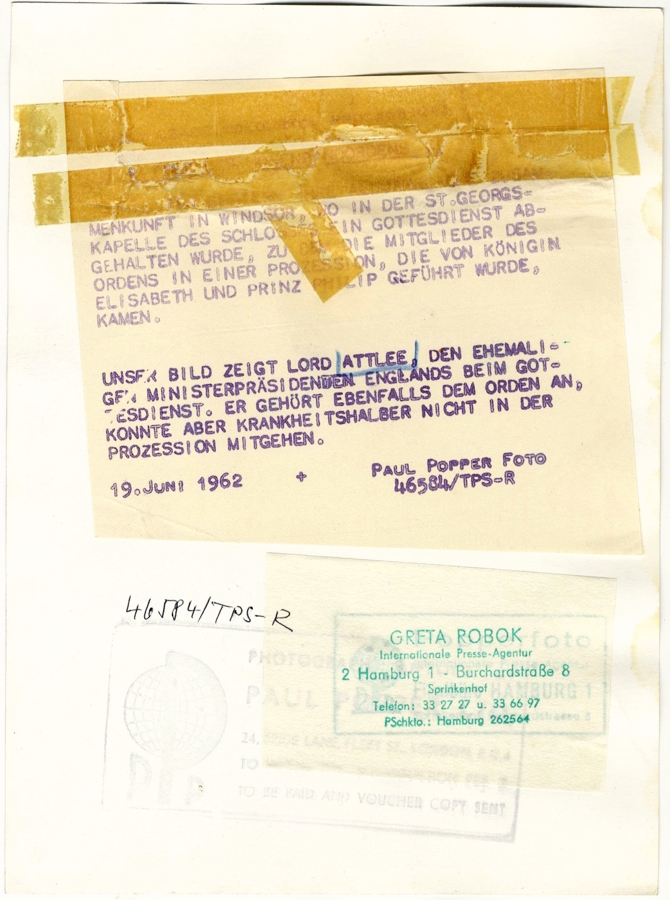 MENKUNFT IN WINDSOR, WO IN DER ST.GEORGS-
KAPELLE DES EIN GOTTESDIENST AB-
GEHALTEN WURDE, ZU DIE MITGLIEDER DES
ORDENS IN EINER PROZESSION, DIE VON KÖNIGIN
ELISABETH UND PRINZ PHILIP GEFÜHRT WURDE,
KAMEN.
UNSER BILD ZEIGT LORD ATTLEE, DEN EHEMALI-
GEN MINISTERPRÄSIDENDEN ENGLANDS BEIM GOT-
TESDIENST. ER GEHÖRT EBENFALLS DEM ORDEN AN,
KONNTE ABER KRANKHEITSHALBER NICHT IN DER
PROZESSION MITGEHEN.
19.JUNI 1962 + PAUL POPPER FOTO
46584/TPS-R
46584/TPS-R
GRETA ROBOK
Internationale Presse-Agentur
2 Hamburg 1 - Burchardstraße 8
Sprinkenhof
Telefon: 33 27 27 u. 33 66 97
PSchkto.: Hamburg 262564
foto
HAMBURG 1
PAUL
LANE, FLEET ST., LONDON
TO
TO BE PAID AND VOUCHER COPY SENT